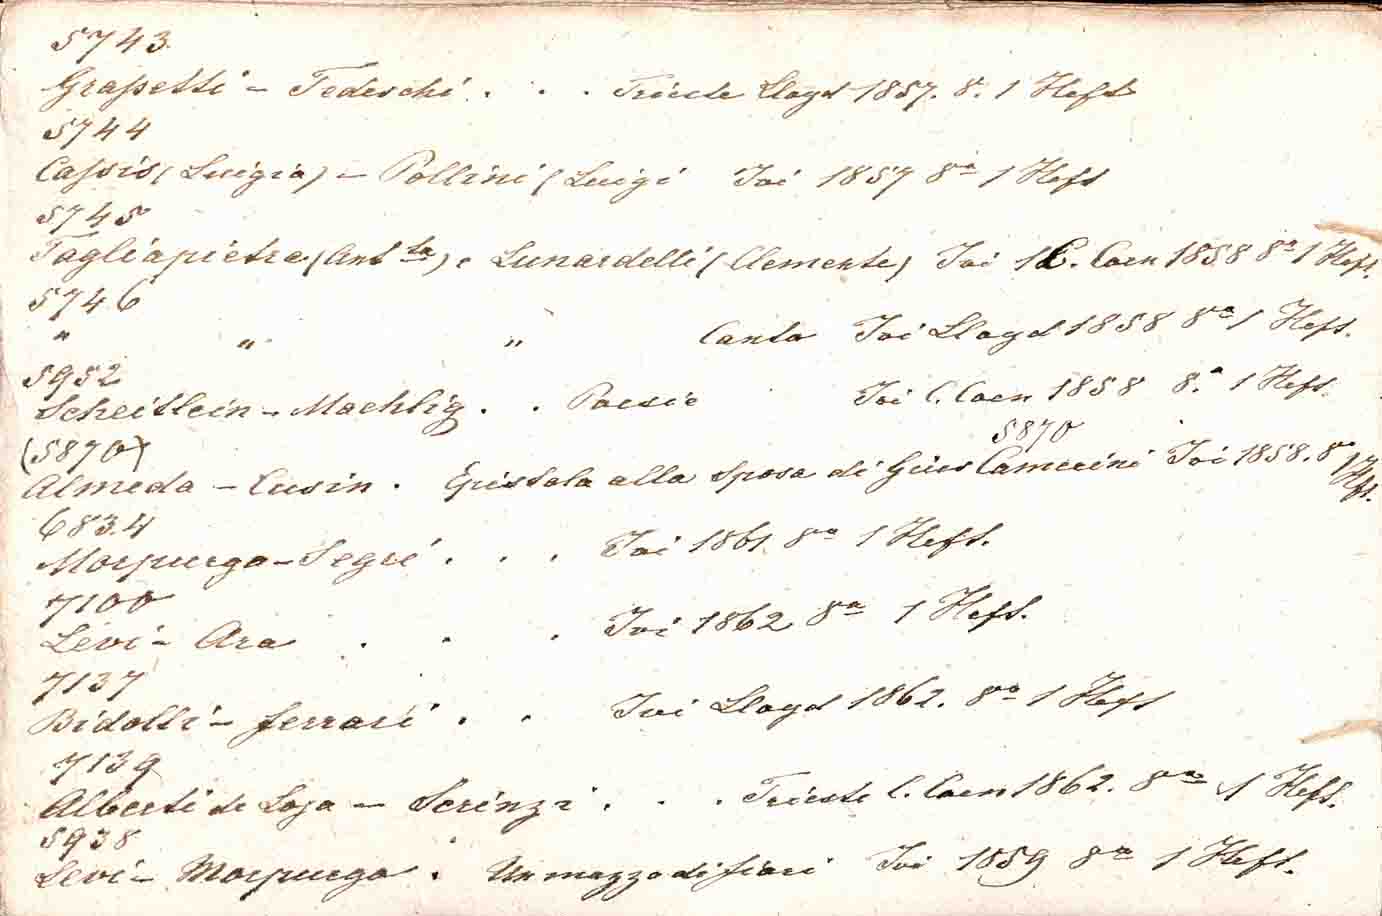 5743
Grassetti - Tedeschi . . . Trieste Lloyd 1857. 8. 1 Heft
5744
Cassis (Luigia) - Pollini (Luigi Ivi 1857 8ª 1 Heft
5745
Tagliapietra (Ant.ta) . Lunardelli (Clemente) Ivi 1 C. Coen 1858 8ª 1 Heft.
5746
" " " Canto Ivi Lloyd 1858 8ª 1 Heft.
5952
Scheitlein - Maehlig . . Poesie Ivi C. Coen 1858 8.ª 1 Heft.
(5870)
5870
Almeda - Cusin . Epistola alla Sposa di Gius Camerini Ivi 1858. 8vo 1 Hft.
6834
Morpurgo - Segré . . . Ivi 1861 8vo 1 Heft.
7100
Levi - Ara . . . Ivi 1862 8ª 1 Heft.
7137
Bidolli - Ferrari . . Ivi Lloyd 1862. 8vo 1 Heft
7139
Alberti de Poja - Scrinzi . . . Trieste C. Coen 1862. 8vo 1 Heft.
5938
Levi - Morpurgo . Un mazzo di fiori Ivi 1859 8ª 1 Heft.